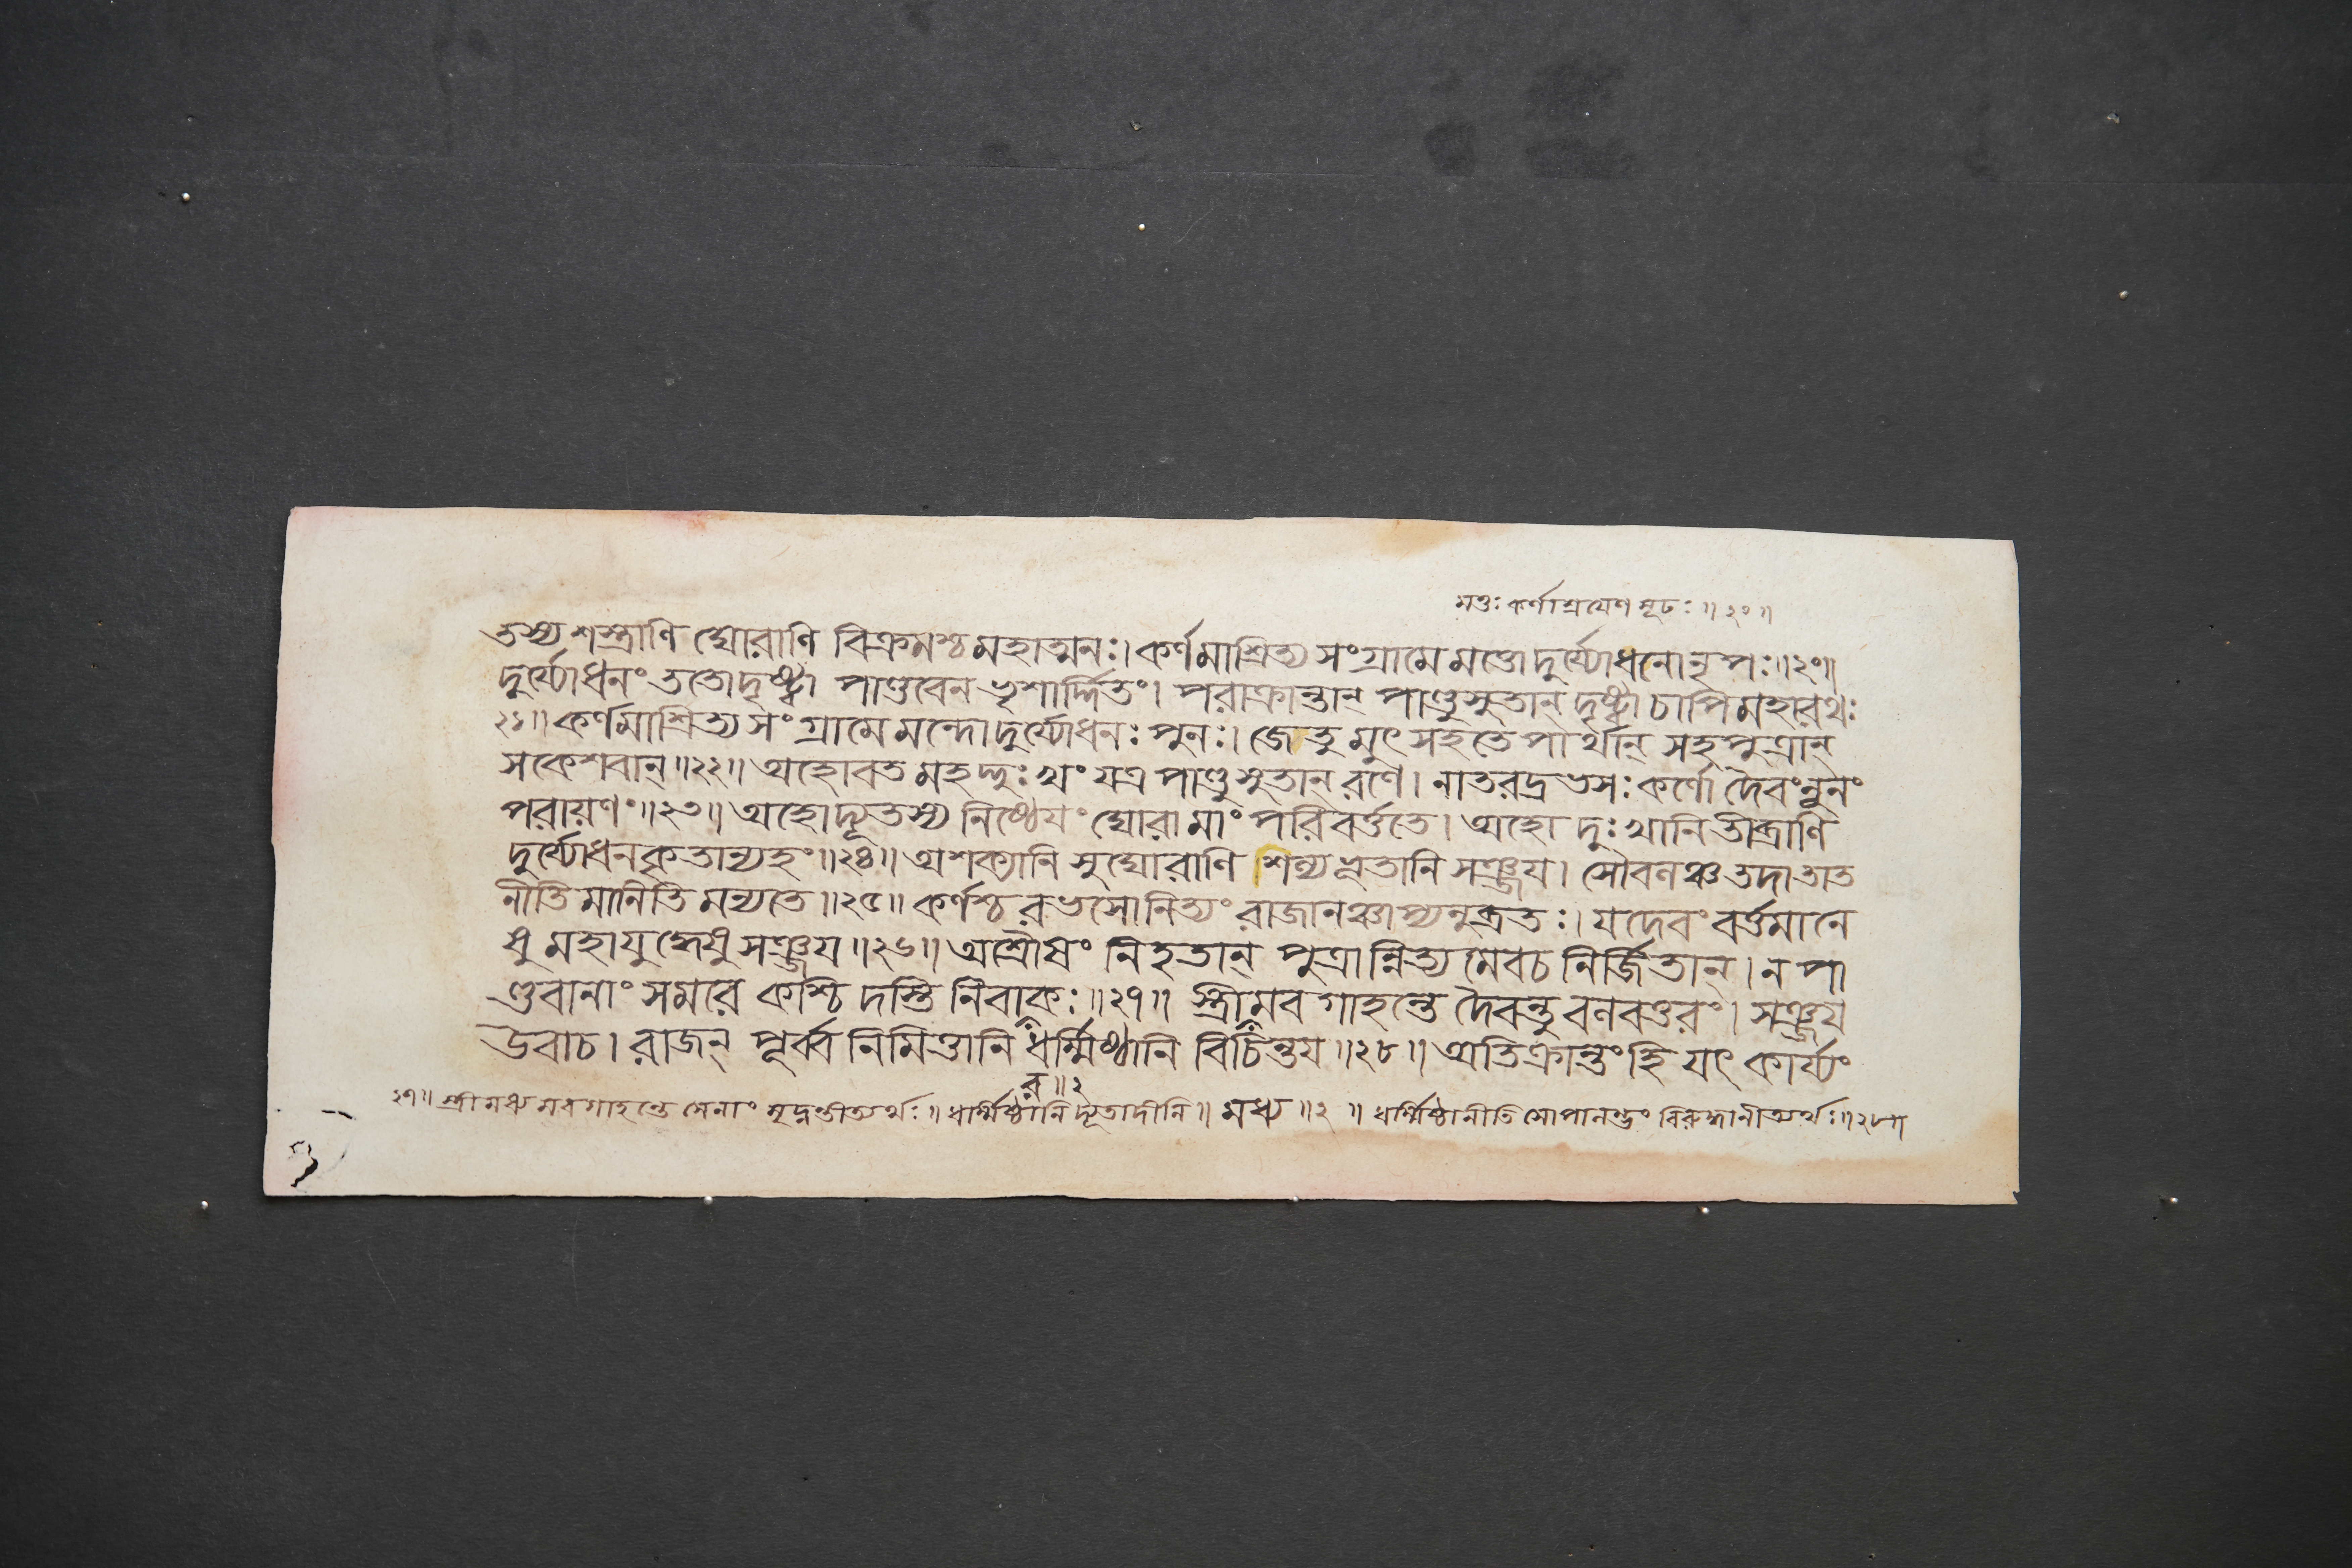 মত্তঃ কর্ণাশ্রয়েণ মূঢঃ ॥ ২০ ॥
তস্য শস্ত্রাণি ঘোরাণি বিক্রমশ্চ মহাত্মনঃ। কর্ণমাশ্রিত্য সংগ্রামে মত্তো দুর্য্যোধনো নৃপঃ॥২০॥
দুর্য্যোধনং ততো দৃষ্ট্বা পাণ্ডবেন ভৃশার্দ্দিতং। পরাক্রান্তান্ পাণ্ডুসুতান্ দৃষ্ট্বা চাপি মহারথঃ
২১॥ কর্ণমাশ্রিত্য সংগ্রামে মন্দো দুর্য্যোধনঃ পুনঃ। জেতুমুৎসহতে পার্থান্ সহপুত্রান্
সকেশবান্॥২২॥ অহোবত মহদ্দুঃখং যত্র পাণ্ডুসুতান্ রণে। নাতরদ্রভসঃ কর্ণো দৈবংন্নূনং
পরায়ণং॥২৩॥ অহো দ্যূতস্য নিষ্ঠেয়ং ঘোরা মাং পরিবর্ত্ততে। অহো দুঃখানি তীব্রাণি
দুর্য্যোধনকৃতান্যহং॥২৪॥ অশক্যানি সুঘোরাণি শল্যভূতানি সঞ্জয়। সৌবলঞ্চ তদা তাত
নীতিমানিতি মন্যতে॥২৫॥ কর্ণশ্চ রভসো নিত্যং রাজানঞ্চাপ্যনুব্রতঃ। যদেবং বর্ত্তমানে
ষু মহাযুদ্ধেষু সঞ্জয়॥২৬॥ অশ্রৌষং নিহতান্ পুত্রান্নিত্যমেবচ নির্জিতান্। ন পা
ণ্ডবানাং সমরে কশ্চিদস্তি নিবাকঃ॥২৭॥ স্ত্রীমবগাহন্তে দৈবন্তু বলবত্তরং। সঞ্জয়
উবাচ। রাজন্ পূর্ব্বনিমিত্তানি ধর্ম্মিষ্ঠানি বিচিন্তয়॥২৮॥ অতিক্রান্তং হি যৎ কার্য্যং
র॥২
২৭॥ স্ত্রীমধ্যমবগাহন্তে সেনাং মৃদ্নন্তীত্যর্থঃ॥ ধর্ম্মিষ্ঠানি দ্যূতাদীনি॥ মধ্য॥২ ॥ ধর্ম্মিষ্ঠানীতি সোপালম্ভং বিরুদ্ধানীত্যর্থঃ॥২৮॥